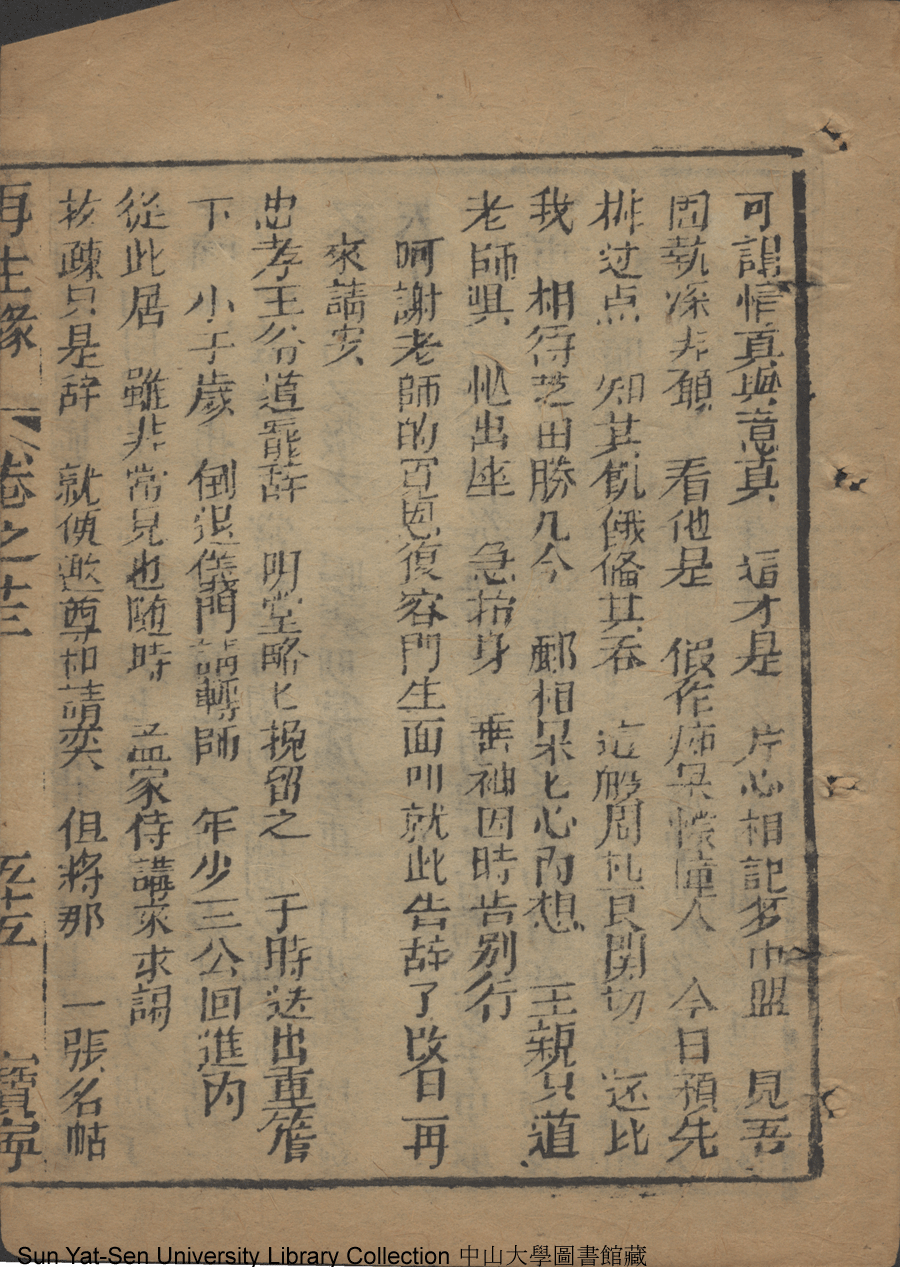 可謂情真與意真　這才是　片心相記多巾盟　見吾
固執深非願　看他是　假作痴呆懞懂人　今日預先
排过点　知其飢餓俻其吞　這般周札良関切　还比
我　相待芝田勝几今　酈相呆匕心內想　王親只道
老師嗔　忙出座　急抬身　垂袖因時告別行
呵謝老師的百恩復容門生面叩就此告辞了改日再
來請安
忠孝王爷道罷辞　明堂略匕挽留之　于時送出重簷
下　小子歲　倒退儀門請轉師　年少三公回進內
從此居　雖非常見也随時　孟家侍講來求謁
推疎只是辞　就値邀尊和請奕　但將那　一張名帖
再生緣　卷之十三　五十五　寶寧
Sun Yat-Sen University Library Collection 中山大學圖書館藏